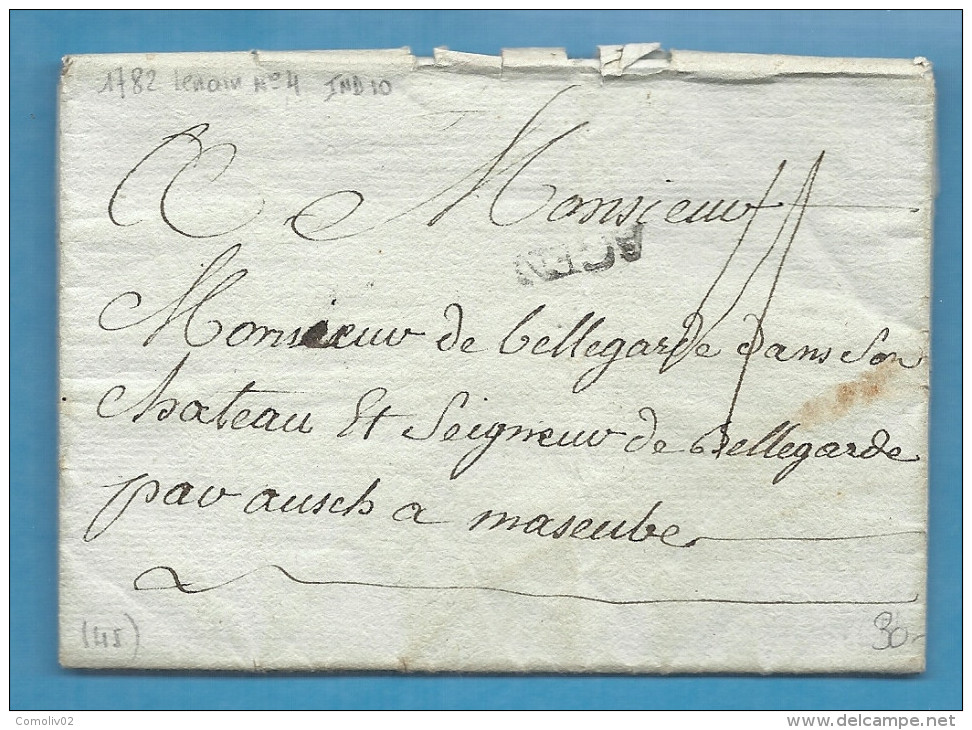 1782 lenain No 4 IND 10
A Monsieur
AGEN
Monsieur de bellegarde dans son
chateau Et Seigneur de bellegarde
par ausch a maseube
(45)
30-
Comoliv02
www.delcampe.net